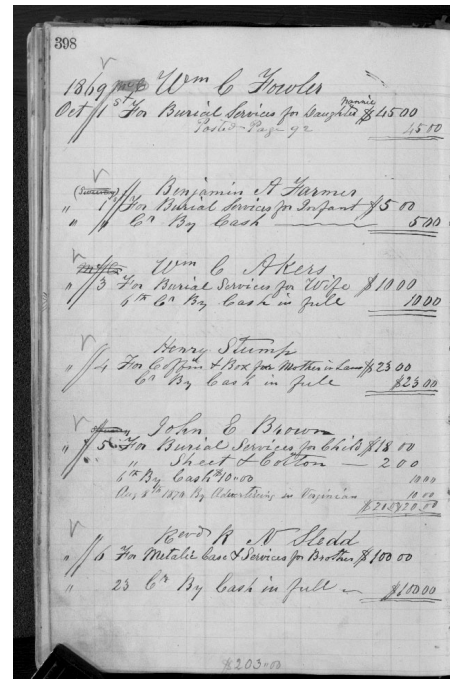 398
1869 Wm C Fowler
Oct 1st For Burial Services for Daughter Nannie $45 00
Posted Page 92 45 00
Benjamin A Farmer
" 1st For Burial Services for Infant $5 00
" " Cr By Cash 5 00
Wm C Akers
" 3 For Burial Services for Wife $10 00
6th Cr By Cash in full 10 00
Henry Stump
" 4 For Coffin & Box for Mother in Law $23 00
Cr By Cash in full $23 00
John E Brown
" 5 For Burial Services for Child $18 00
" Sheet & Cotton — 2 00
6th By Cash $10 00 10 00
Aug 8th 1870 By Advertising in Virginian 10 00
$20 00 20 00
Revd R N Sledd
" 6 For Metalic Case & Services for Brother $100 00
" 23 Cr By Cash in full $100 00
$203 00